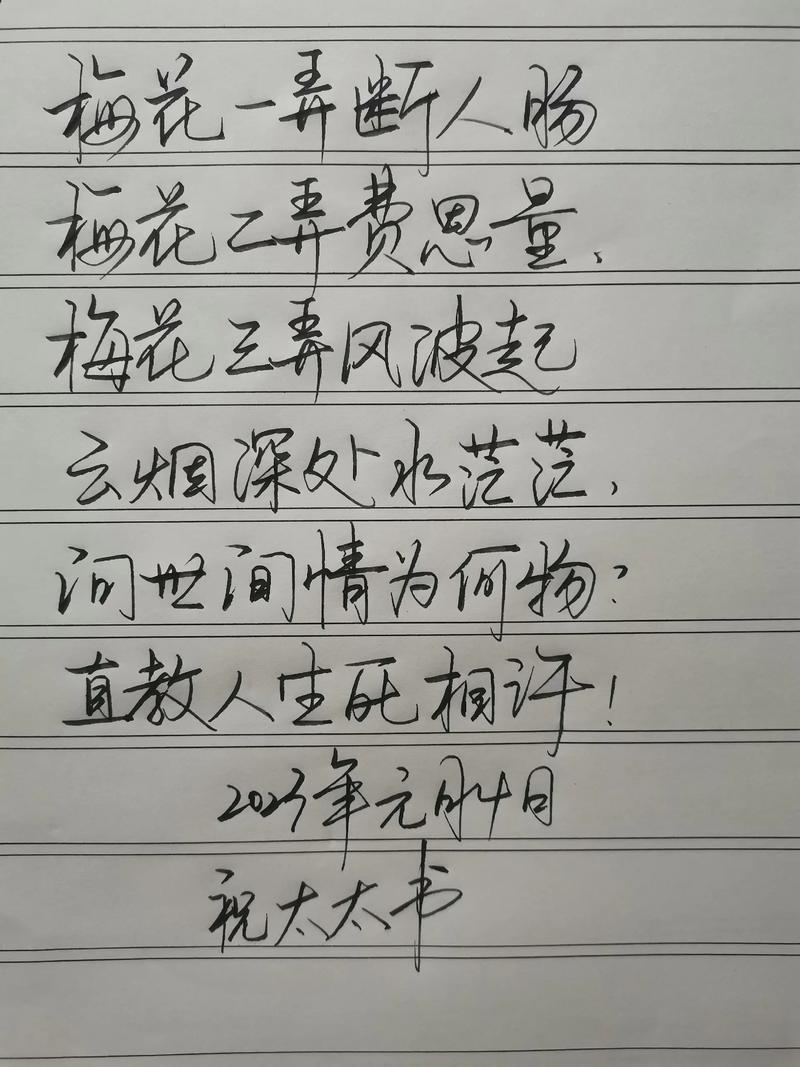 梅花一弄断人肠
梅花二弄费思量、
梅花三弄风波起
云烟深处水茫茫,
问世间情为何物?
直教人生死相许!
2023年元月4日
祝太太书